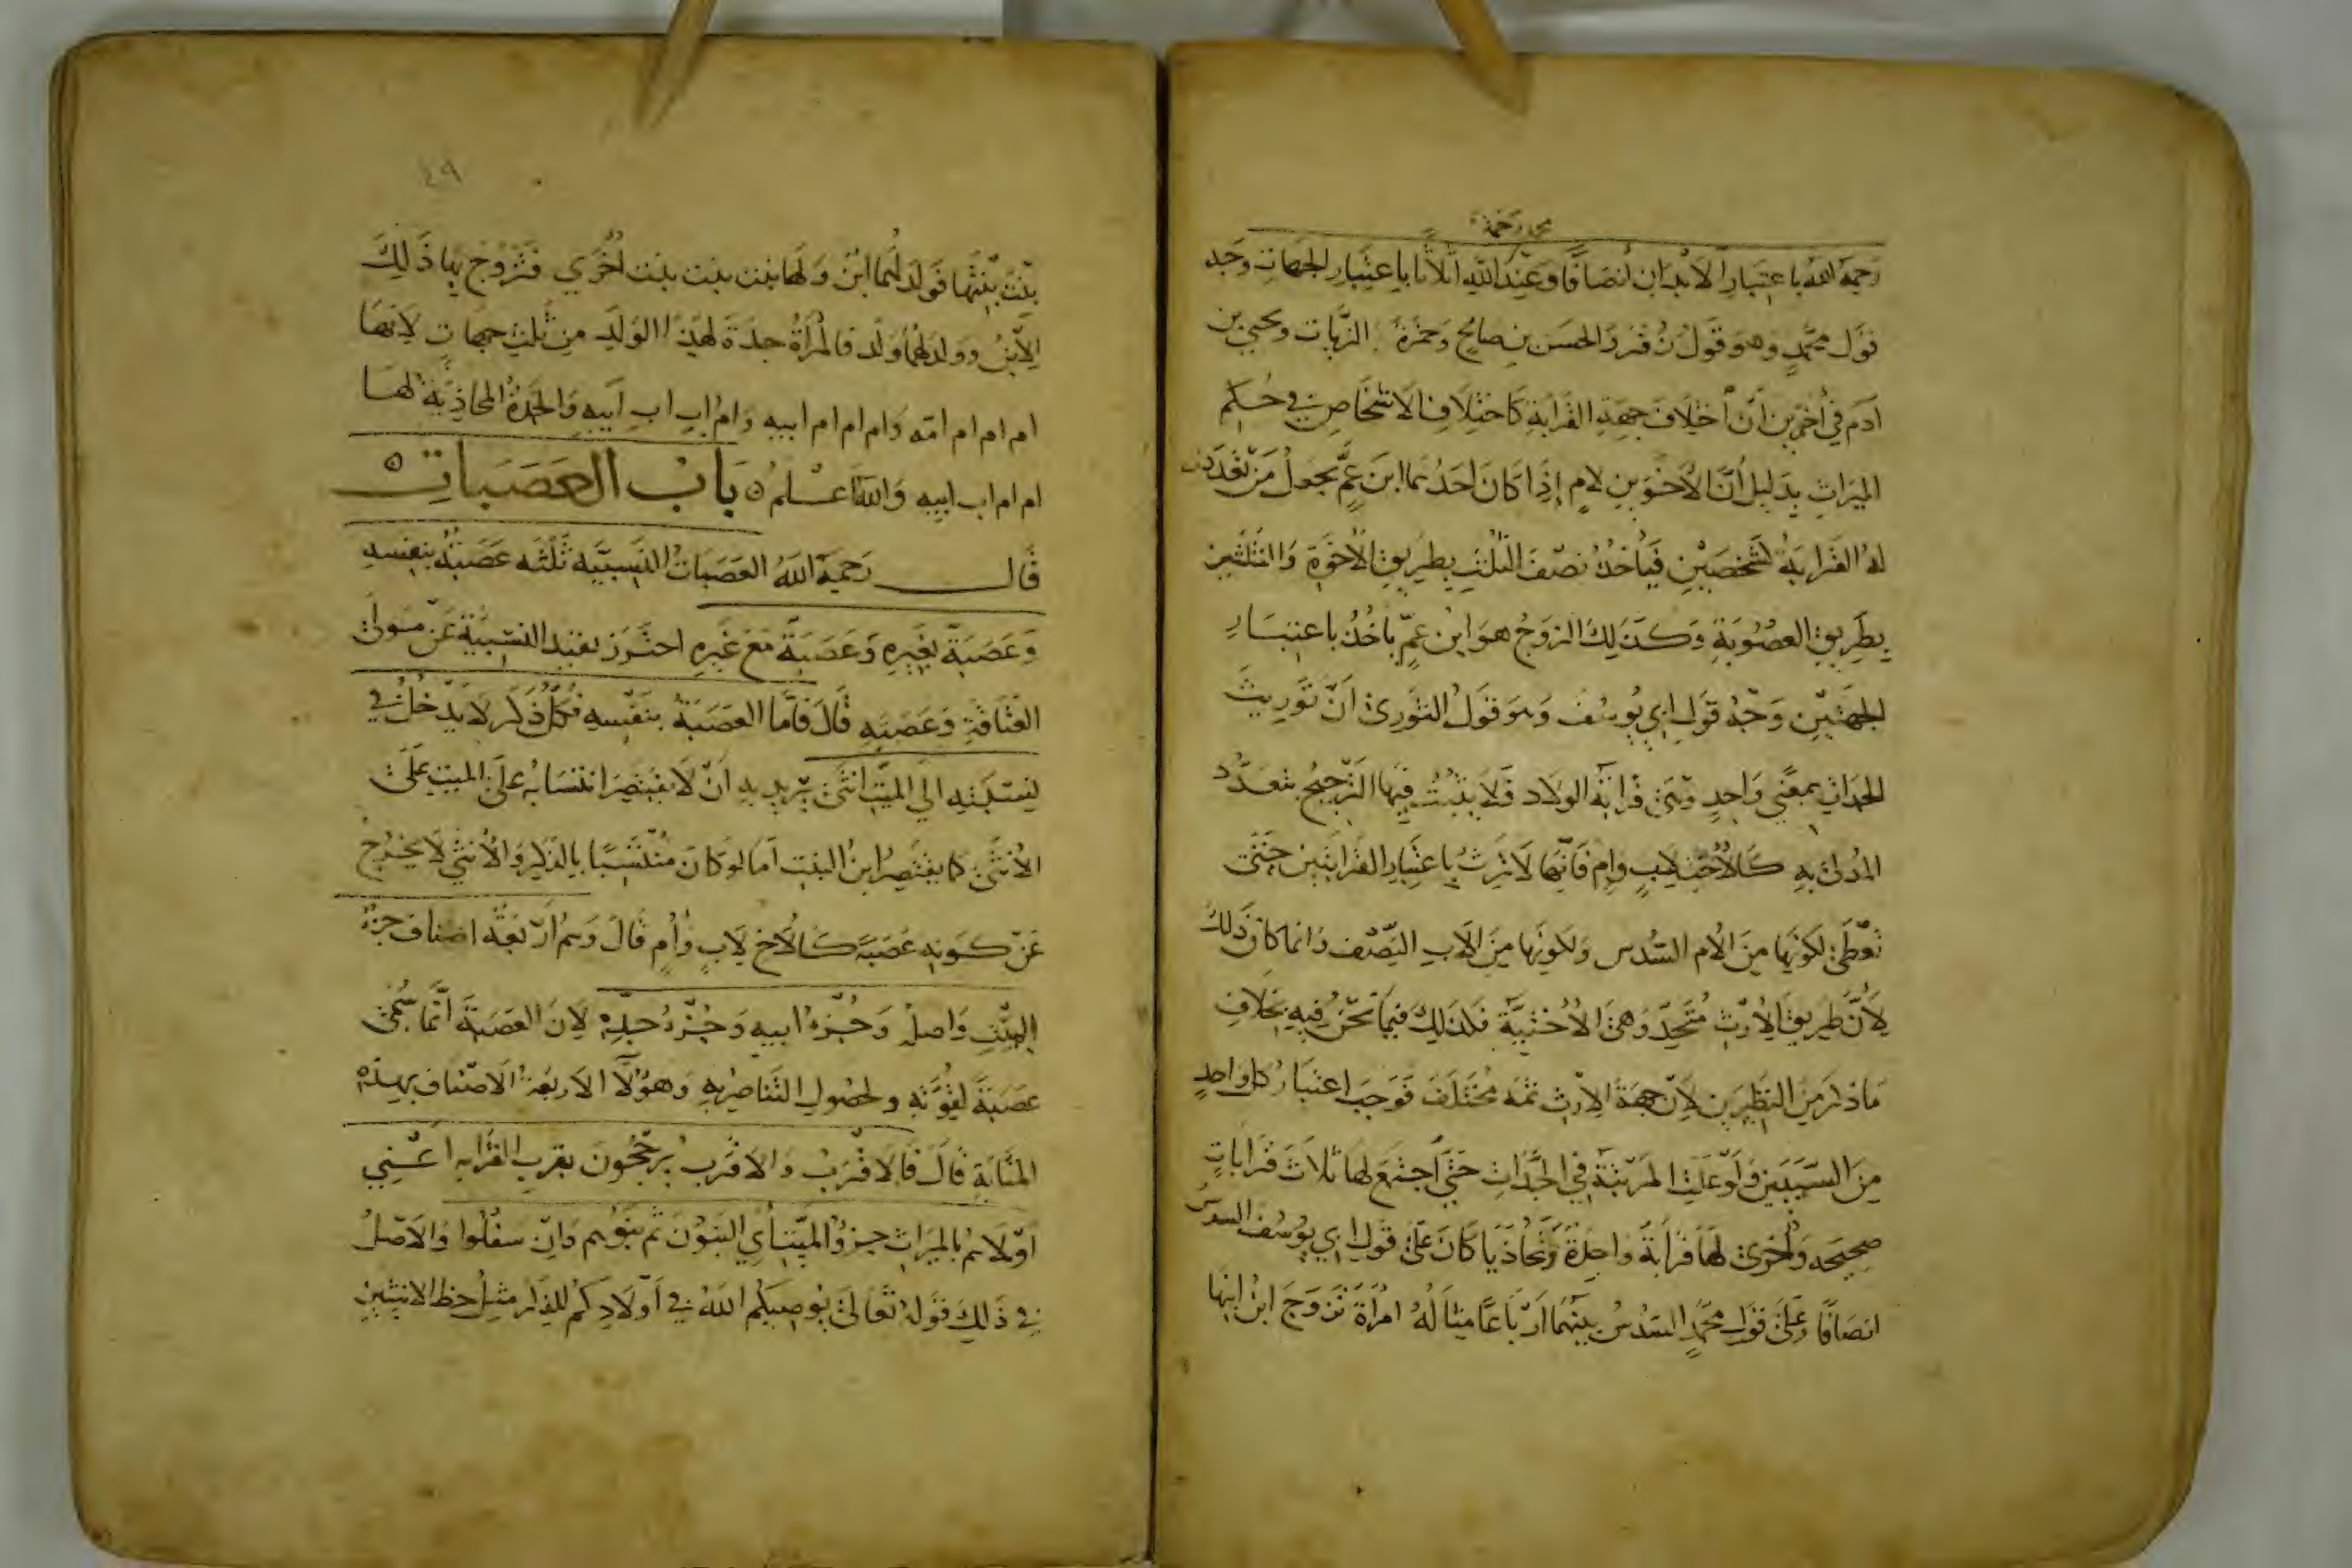 محمد رحمه
رَحمَهُ اللهُ باعتبارِ الابدانِ أنصَافًا وعِندَ اللهِ أثلاثًا باعتِبارِ الجهاتِ وجه
قول محمّدٍ وهو قولُ زُفَرَ والحسَن بن صالحٍ وحَمزَةَ الزّيات ويحيى بن
آدم في أخرين أنّ أختِلَافَ جهةِ القَرابةِ كاختِلَافِ الاشخاصِ في حُكمِ
الميرَاثِ بدَليلِ أنّ الأخوَينِ لامٍ إذا كانَ أحَدُهما ابنَ عمٍّ يجعلُ مَن تعَدّدت
لهُ القَرابَةُ كشَخصَينِ فيَأخذُ نصفَ الثلثِ بطريقِ الأخوَةِ والثلثين
بطَريقِ العصُوبَةِ وكَذلكَ الزوجُ هوَ ابن عمٍّ ياخذُ باعتبَارِ
الجهَتَينِ وَجهُ قَولِ ابي يُوسُف وهو قولُ الثوري أنّ تَورِيثَ
الجدات بمعنًى واحدٍ وهي قرابةُ الولاد فَلا يثبُتُ فيها الترجيحُ بتعدّد
المُدلى به كالأختِ لابٍ وامٍ فانّها لا ترثُ باعتبارِ القرابتين حتى
تُعطَى لكونها مِنَ الأم السُدس ولكونها مِنَ الأبِ النِصفَ وانما كانَ ذلكَ
لأنّ طريقَ الأرثِ مُتحِدٌ وهي الأختيّة فكذلك فيما نحنُ فيه بخلافِ
ما ذكرَ مِنَ النظيرَين لأنّ جهةَ الأرث ثمّه مُختلِفَة فوجبَ اعتبارُ كل واحدٍ
مِنَ السَببَين ولو عَلَتِ المرتبَةُ في الجدّاتِ حتى أجتمعَ لها ثلاث قرَاباتٍ
صحيحه وأخرى لها قرَابَةٌ واحِدةٌ وتحاذيا كانَ عَلى قولِ ابي يُوسُف السدسُ
انصَافًا وعَلى قولِ محمّدٍ السُدسُ بينهُما أربَاعًا مثالهُ امرأةٌ تزوجَ ابنُ ابنِها
٤٩
بِنتَ بِنتِها فوَلدَ لهُما ابنٌ ولها بنت بنت بنت أُخرَى فتزوجَ بها ذَلكَ
الابنُ وولدَ لهُما ولَد فالمرأةُ جدّةٌ لهذا الوَلَدِ مِن ثلثِ جهاتٍ لانّها
ام ام ام ام امّه وَام ام ام ام ابيه وَام ابِ ابِ أبيهِ وَالجدّةُ المحاذيَةُ لها
ام ام اب ابيهِ وَاللهُ اعــلمُ ه بَابُ العَصَبَاتِ ه
قَالــــ رَحمَهُ اللهُ العَصَبَاتُ النَسبيّه ثَلثَه عَصَبةٌ بنفسهِ
وَعَصَبَةٌ بغَيرهِ وَعَصَبةٌ مَعَ غَيرهِ احترَز بقيد النسَبيّةِ عَن مَولى
العتَاقةِ وَعَصَبتهِ قَالَ فأمّا العَصَبَةُ بنَفسهِ فكلُّ ذكَرٍ لا يَدخُلُ في
نِسبَتِهِ الى الميّتِ انثى يريد بهِ انّ لا يقتصِرَ انتسَابُه على الميّتِ على
الأنثى كما يقتصِرُ ابنُ البنتِ امّا لو كانَ مُنتسَبًا بالذكرِ وَالأنثى لا يخرجُ
عَن كَونهِ عصَبةً كَالأخِ لابٍ وأُمٍ قَالَ وهم أربَعَةُ اصناف جزءُ
الميّتِ وَاصلُه وَجُزءُ ابيهِ وَجُزءُ جدّهِ لأنّ العَصَبَةَ انّما سُمّى
عصَبَةً لقوّتهِ ولحصُولِ التّناصُربهِ وَهؤلاءِ الاربعةُ الاصناف بهذه
المثَابَةِ قَالَ فَالاقرَبُ وَالاقرَب يرجّحُونَ بقربِ القَرابه أعــنِي
اوّلاهم بالميراثِ جزؤُ الميّتِ أي البنونَ ثم بنَوهم وَان سَفَلُوا وَالاصلُ
في ذَلكَ قَولهُ تعَالى يُوصيكم اللهُ في أولادِكم للذّكرِ مثلُ حظ الانثيينِ